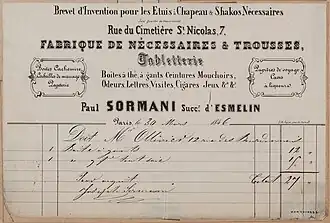 Brevet d'Invention pour les Etuis, Chapeau & Shakos, Nécessaires
Rue du Cimetière St. Nicolas, 7.
FABRIQUE DE NÉCESSAIRES & TROUSSES,
Tabletterie
Boîtes à thé, à gants Ceintures Mouchoirs,
Odeurs, Lettres, Visites, Cigares Jeux &c &c
Portes Cachemire
Corbeilles de mariage
Papeterie
Pupitres de voyage
Caves
à liqueurs &c
Paul SORMANI Succr. d'ESMELIN
Paris, le 30 Mars 1846
Doit Mr Ollivier 12 rue des
1 Boite à gants 12
1 15
Pour acquit Total 27
Sormani